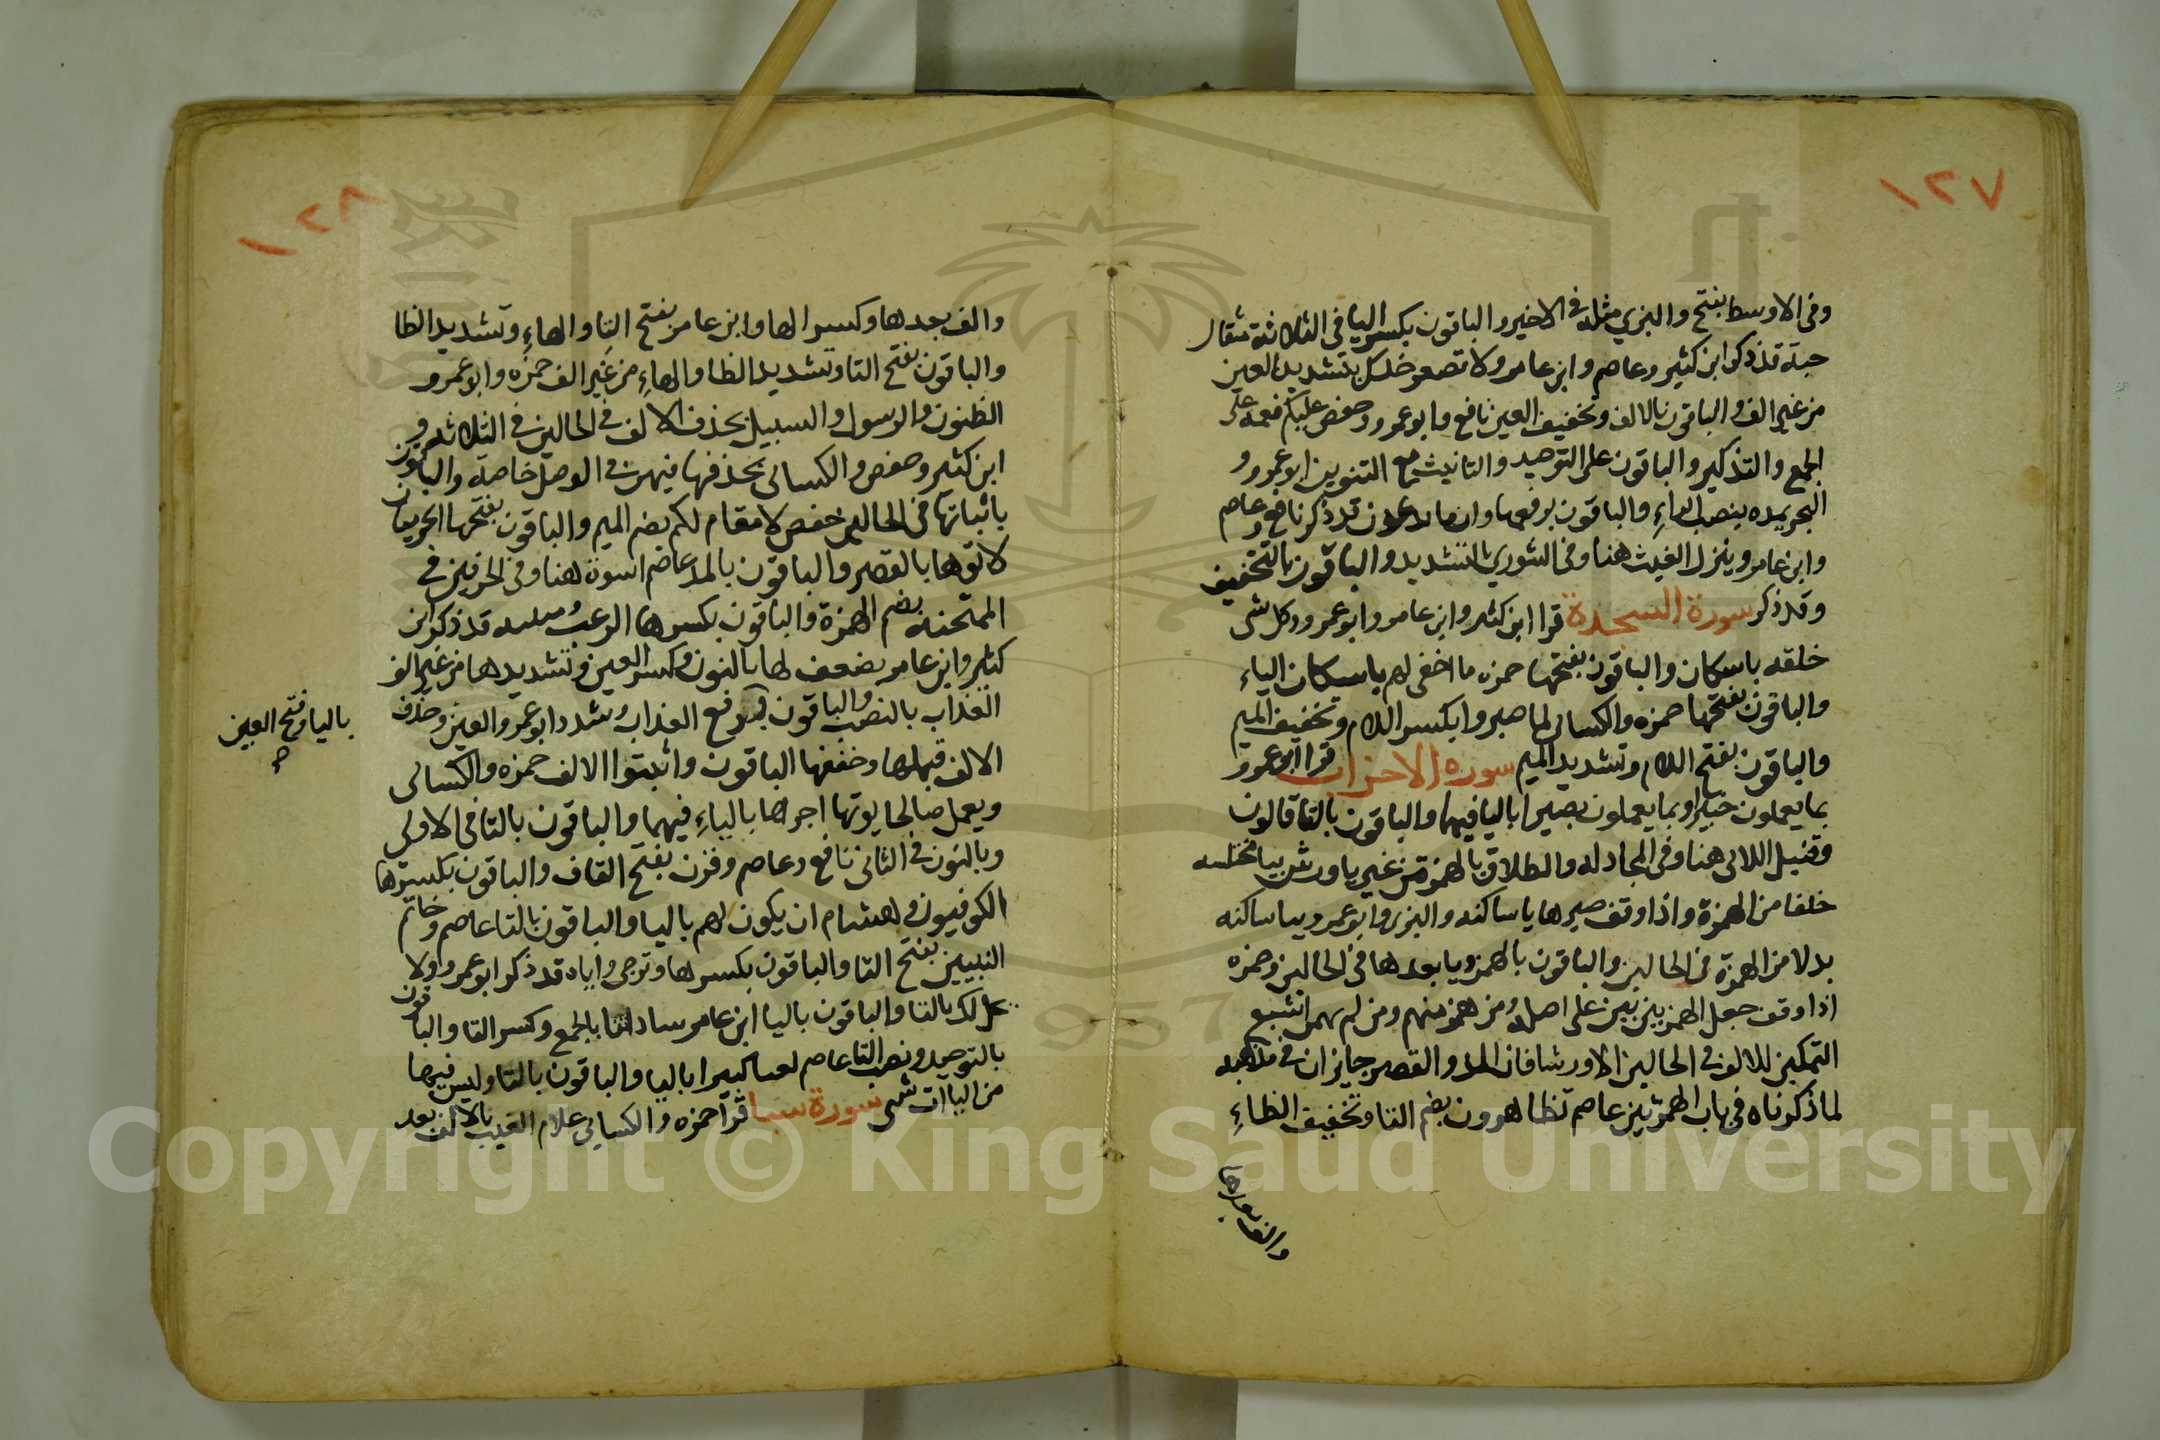 ١٢٧
وفي الاوسط بفتح والبزي مثله في الاخير والباقون بكسر اليا في الثلاثة مثقال
حبة قد ذكر ابن كثير وعاصم وابن عامر ولا تصعر خدك بتشديد العين
من غير الف والباقون بالالف وتخفيف العين نافع وابو عمرو وحفص عليكم نعمه على
الجمع والتذكير والباقون على التوحيد والتانيث مع التنوين ابو عمرو و
البحر يمده بنصب الراءِ والباقون برفعها وان ما يدعون قد ذكر نافع وعاصم
وابن عامر وينزل الغيث هنا وفي الشوري بالتشديد والباقون بالتخفيف
وقد ذكر سورة السجدة قرا ابن كثير وابن عامر وابو عمرو كل شى
خلقه باسكان والباقون بفتحها حمزه ما اخفى لهم باسكان الياء
والباقون بفتحها حمزه والكسائى لما صبروا بكسر اللام وتخفيف الميم
والباقون بفتح اللام وتشديد الميم سورة الاحزاب قرا ابو عمرو
بما يعملون خبيرا وبما يعملون بصيرا باليا فيهما والباقون بالتا قالون
وقنبل اللائى هنا وفي المجادله والطلاق بالهمزة من غير يا ورش بيا مختلسه
خلفا من الهمزة واذا وقف صيرها يا ساكنه والبزى وابو عمرو بيا ساكنه
بدلا من الهمزة في الحالين والباقون بالهمز ويا بعدها في الحالين وحمزه
اذا وقف جعل الهمز بين بين على اصله ومن همز منهم ومن لم يهمز اشبع
التمكين للالف في الحالين الا ورشا فان المد والقصر جايزان في مذهبه
لما ذكرناه في باب الهمزتين عاصم تظاهرون بضم التا وتخفيف الظاءِ
والف بعدها
١٢٨
والف بعدها وكسر الها وابن عامر بفتح التا والهاءِ وتشديد الظا
والباقون بفتح التا وتشديد الظا والهاءِ من غير الف حمزه وابو عمرو
الظنون والرسول والسبيل بحذف الالف في الحالين في الثلاثة و
ابن كثير وحفص والكسائى بحذفها فيهن في الوصل خاصة والباقون
باثباتها في الحالين حفص لا مقام لكم بضم الميم والباقون بفتحها الحرميان
لاتوها بالقصر والباقون بالمد عاصم اسوة هنا وفي الحرفين في
الممتحنه بضم الهمزة والباقون بكسرها الرعب قد ذكر ابن
كثير وابن عامر يضعف لها بالنون وكسر العين وتشديدها من غير الف
العذاب بالنصب والباقون برفع العذاب وشدد ابو عمرو العين وحذف
باليا وفتح العين
صح
الالف قبلها وخففها الباقون واثبتوا الالف حمزه والكسائى
ويعمل صالحا يوتها اجرها بالياءِ فيهما والباقون بالتا في الاولى
وبالنون في الثانى نافع وعاصم وقرن بفتح القاف والباقون بكسرها
الكوفيون وهشام ان يكون لهم باليا والباقون بالتا عاصم وخاتم
النبيين بفتح التا والباقون بكسرها وترجى واياه قد ذكر ابو عمرو ولا
تحل لك بالتا والباقون باليا ابن عامر ساداتنا بالجمع وكسر التا والباقون
بالتوحيد ونصب التا عاصم لعنا كبيرا بالبا والباقون بالثا وليس فيها
من الياات شى سورة سبا قرا حمزه والكسائى علام الغيب بالالف بعد
Copyright © King Saud University
1957